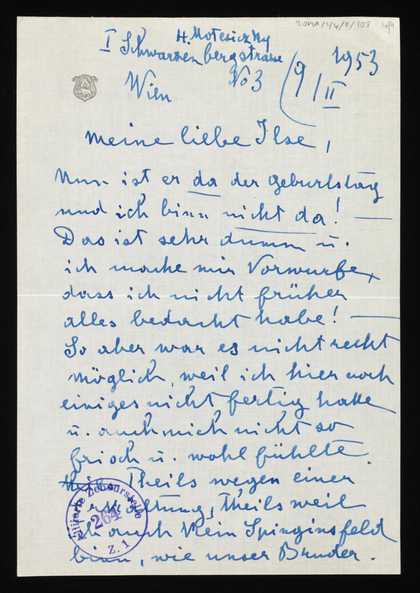 H. Motesiczky
I Schwarzenbergstrasse
No 3
Wien
9/II 1953
meine liebe Ilse,
Nun ist er da der Geburtstag
und ich binn nicht da! —
Das ist sehr dumm u.
ich mache mir Vorwürfe,
dass ich nicht früher
alles bedacht habe! —
So aber war es nicht recht
möglich, weil ich hier noch
einiges nicht fertig hatte
u. auch mich nicht so
frisch u. wohl fühlte.
Theils wegen einer
Erkältung, theils weil
ich auch kein Springinsfeld
binn, wie unser Bruder.
264
Z. 1